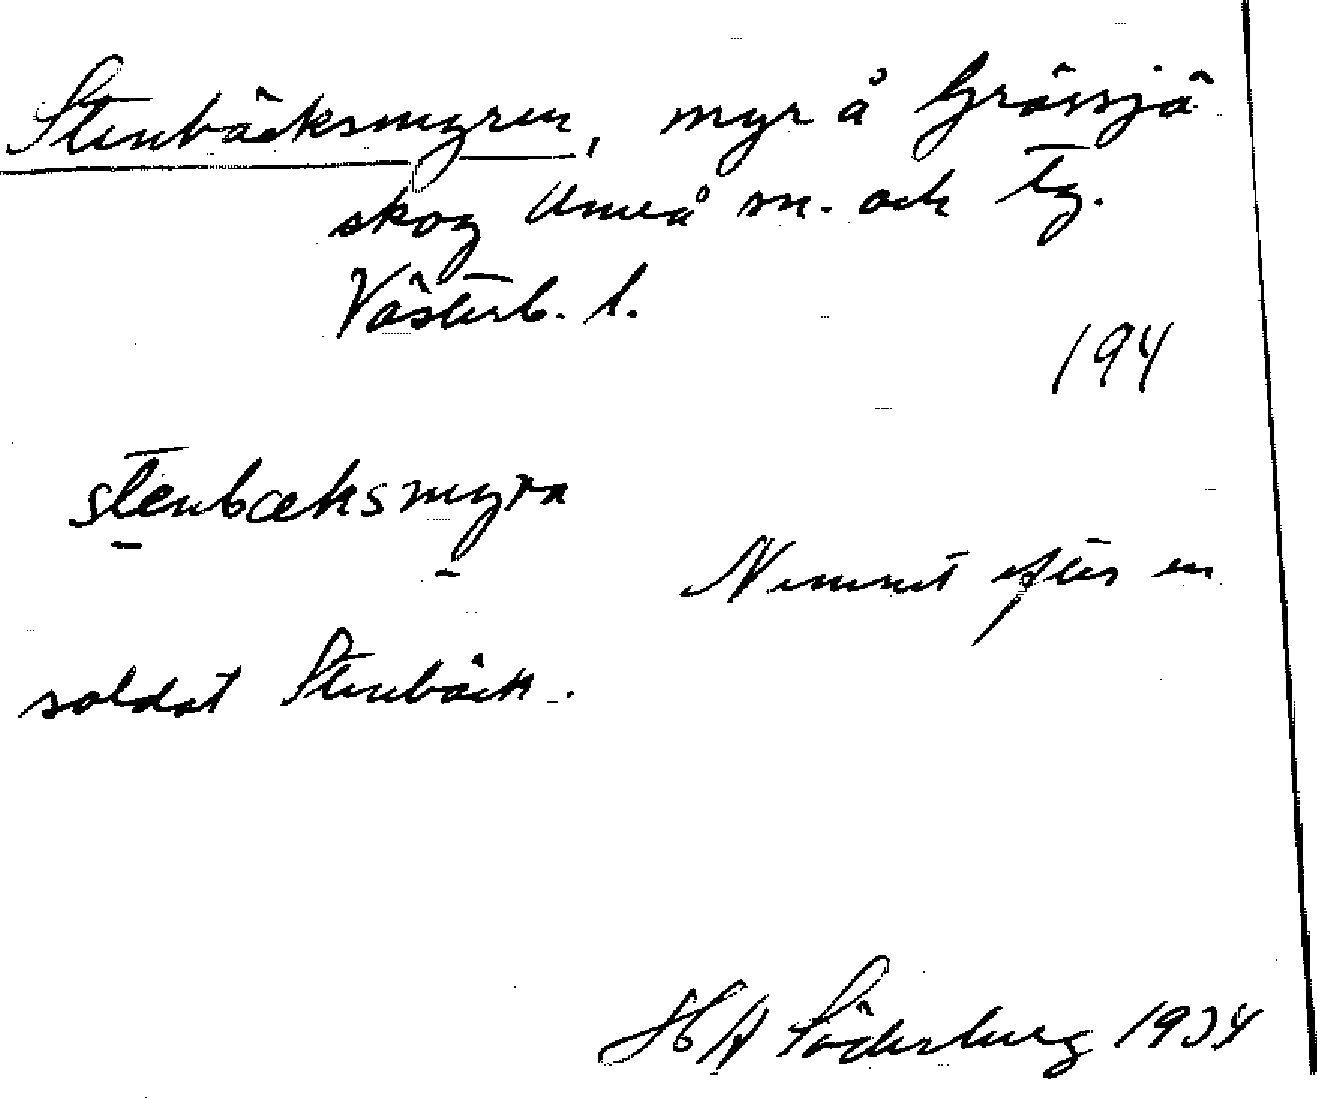 Stenbäcksmyren, myr å Grössjö
skog Umeå sn. och tg.
Västerb. l.
194
stenbæksmyra
Nemnet efter en
soldat Stenbäck.
H A Söderberg 1934